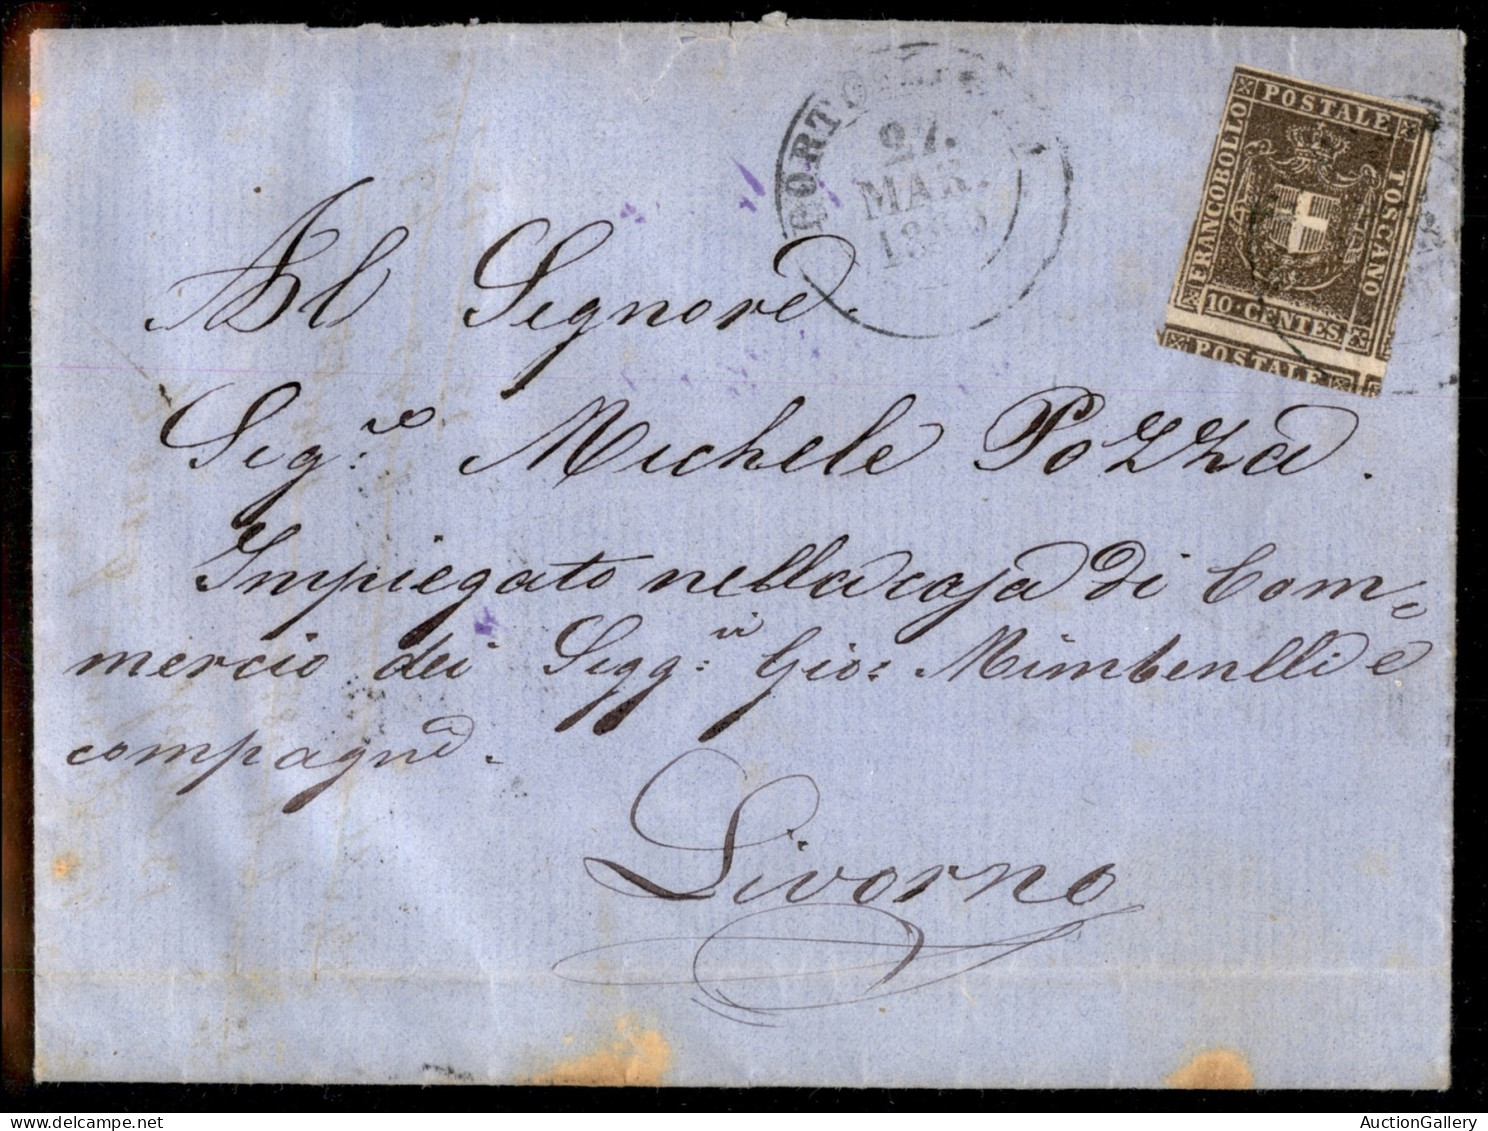 27.
MAR.
FRANCOBOLLO POSTALE TOSCANO
10·CENTES
POSTALE
Al Signore
Sig.re Michele Pozza.
Impiegato nella casa di Com=
mercio dei Sigg.ri Gio: Mimbenlli e
compagni.
Livorno
AuctionGallery